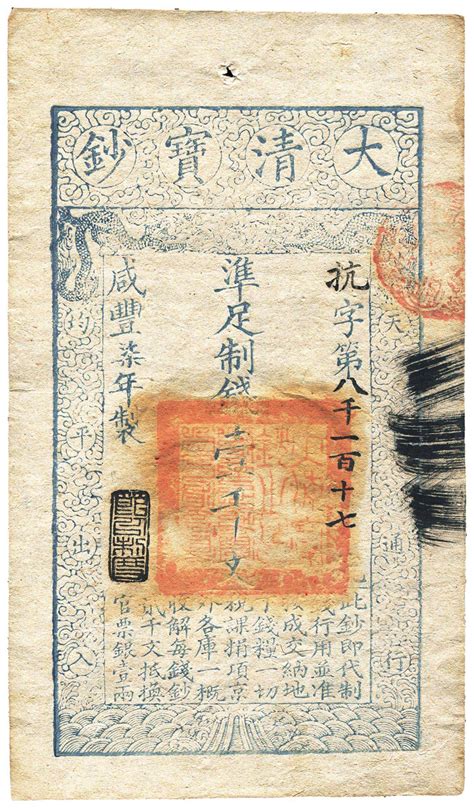 大清寶鈔
天通行
抗字第八千一百十七
準足制錢壹千文
咸豐柒年製
均平出入
此鈔即代制
錢行用並准
成交納地
丁錢糧一切
稅課捐項京
外各庫一概
收解每錢鈔
貳千文抵換
官票銀壹兩